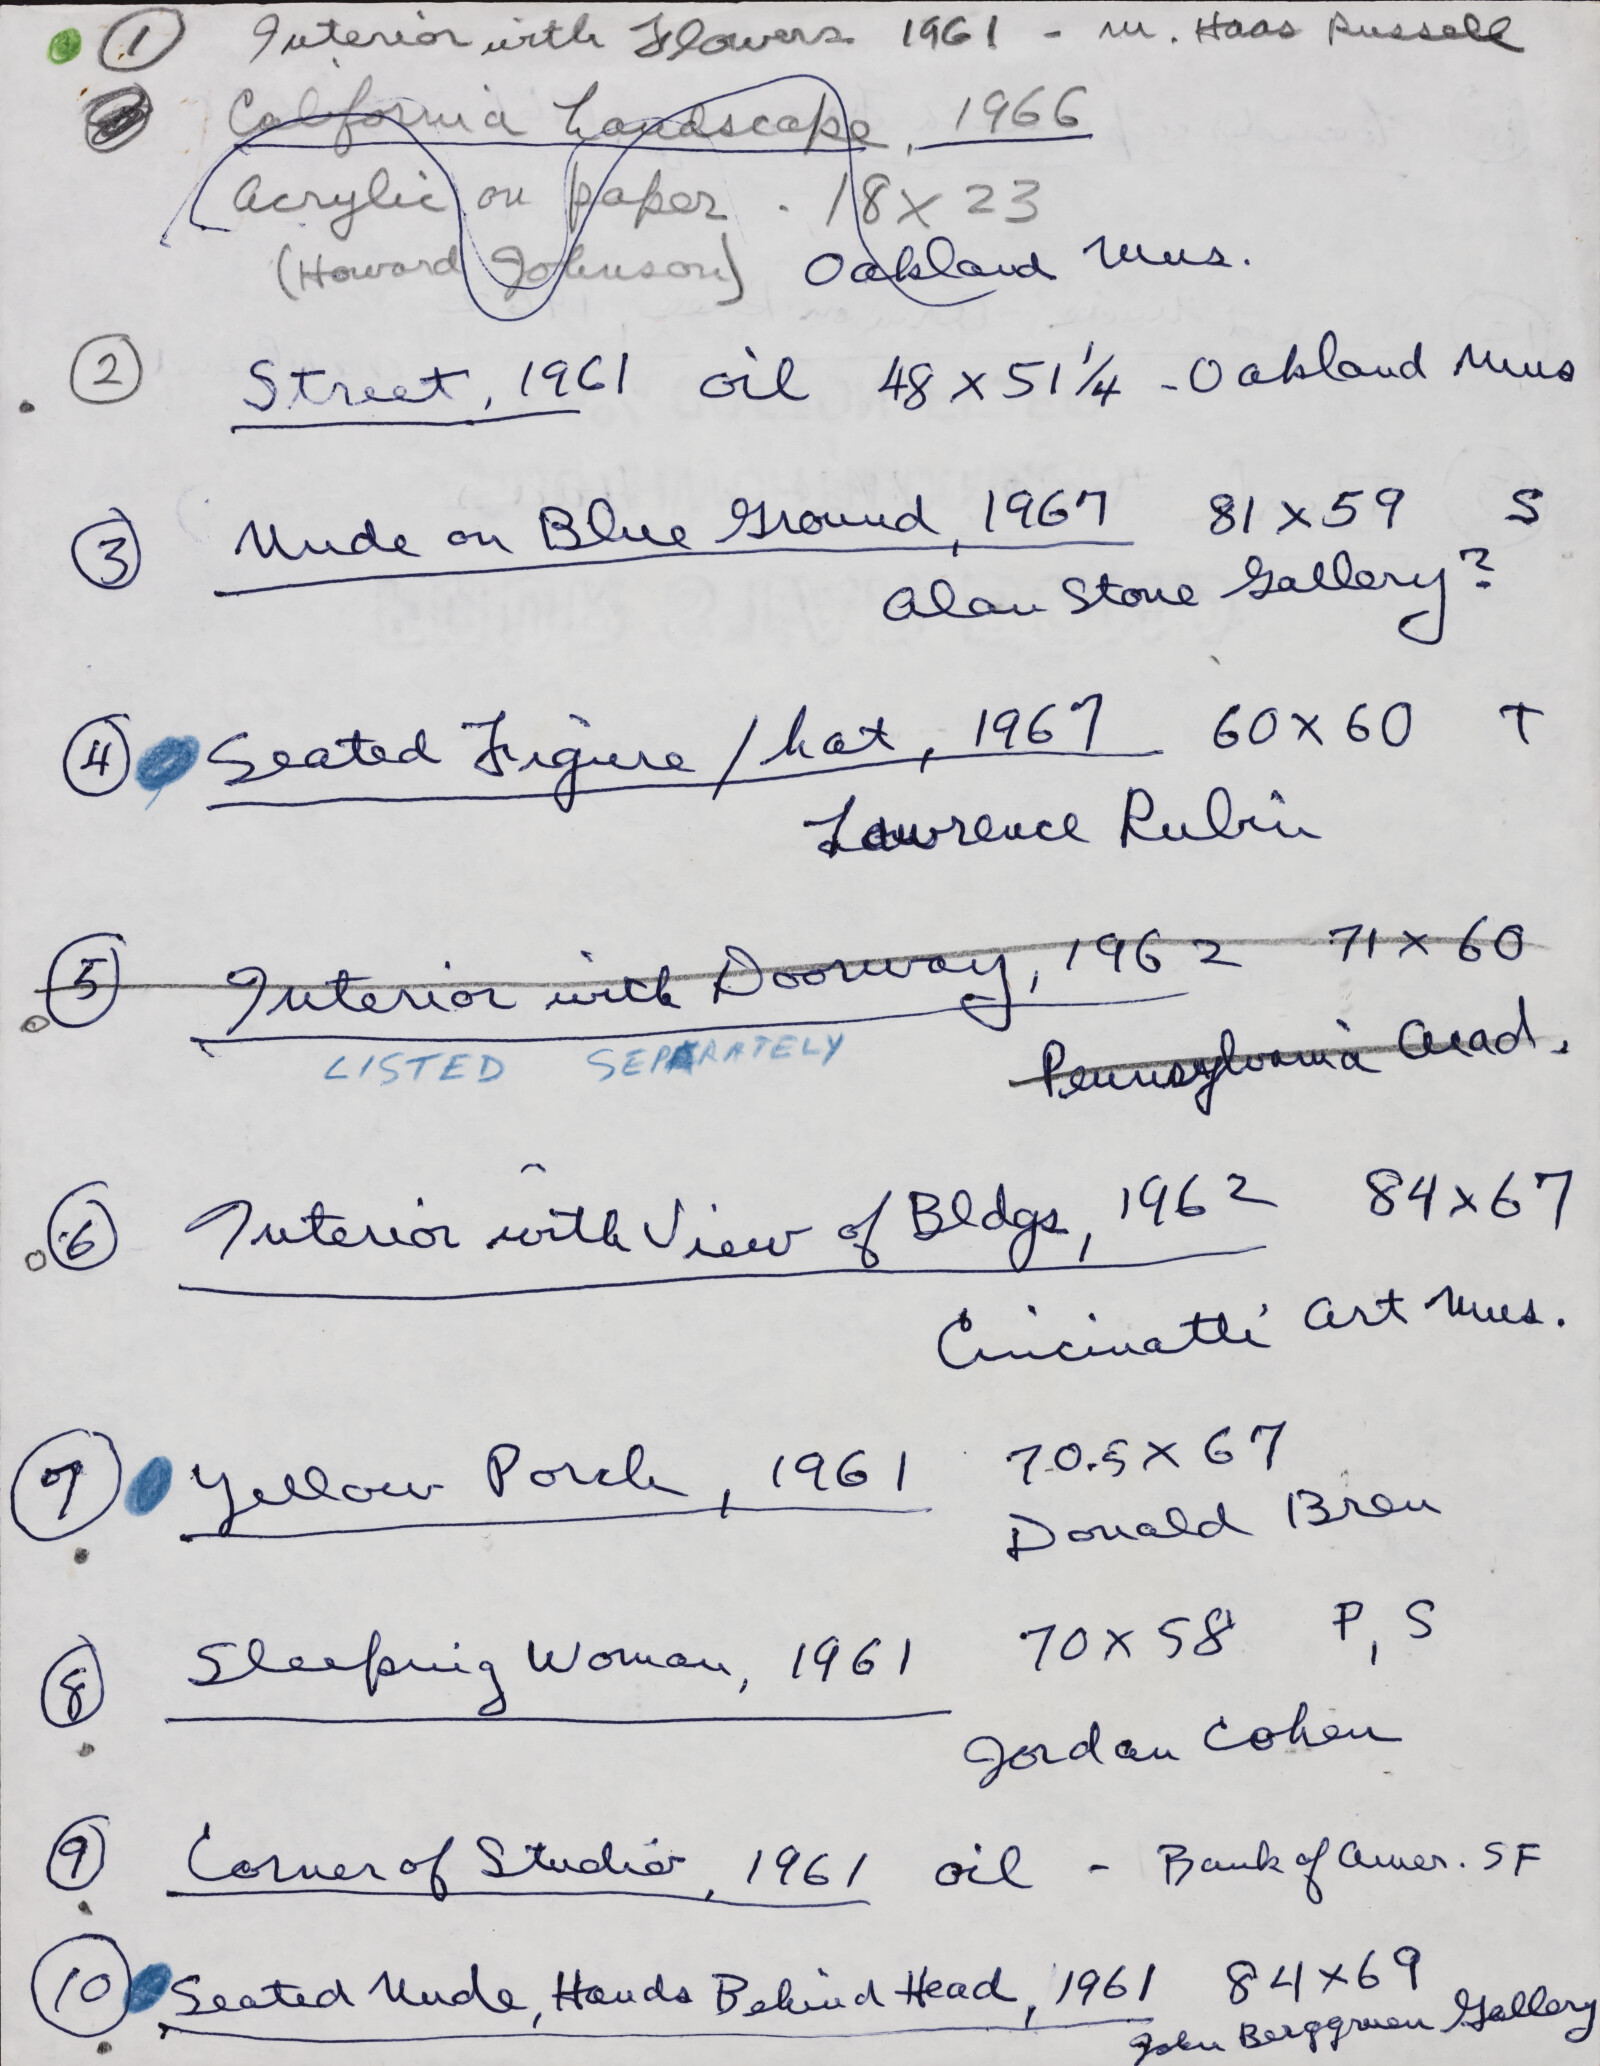 1 Interior with Flowers 1961 - M. Haas Russell
California Landscape, 1966
Acrylic on paper - 18 x 23
(Howard Johnson) Oakland Mus.
2 Street, 1961 oil 48 x 51 1/4 - Oakland Mus
3 Nude on Blue Ground, 1967 81 x 59 S
Alan Stone Gallery?
4 Seated Figure / hat, 1967 60 x 60 T
Lawrence Rubin
5 Interior with Doorway, 1962 71 x 60
LISTED SEPARATELY Pennsylvania Acad.
6 Interior with View of Bldgs, 1962 84 x 67
Cincinatti Art Mus.
7 Yellow Porch, 1961 70.5 x 67
Donald Bren
8 Sleeping Woman, 1961 70 x 58 P, S
Jordan Cohen
9 Corner of Studio, 1961 oil - Bank of Amer. SF
10 Seated Nude, Hands Behind Head, 1961 84 x 69
John Berggruen Gallery